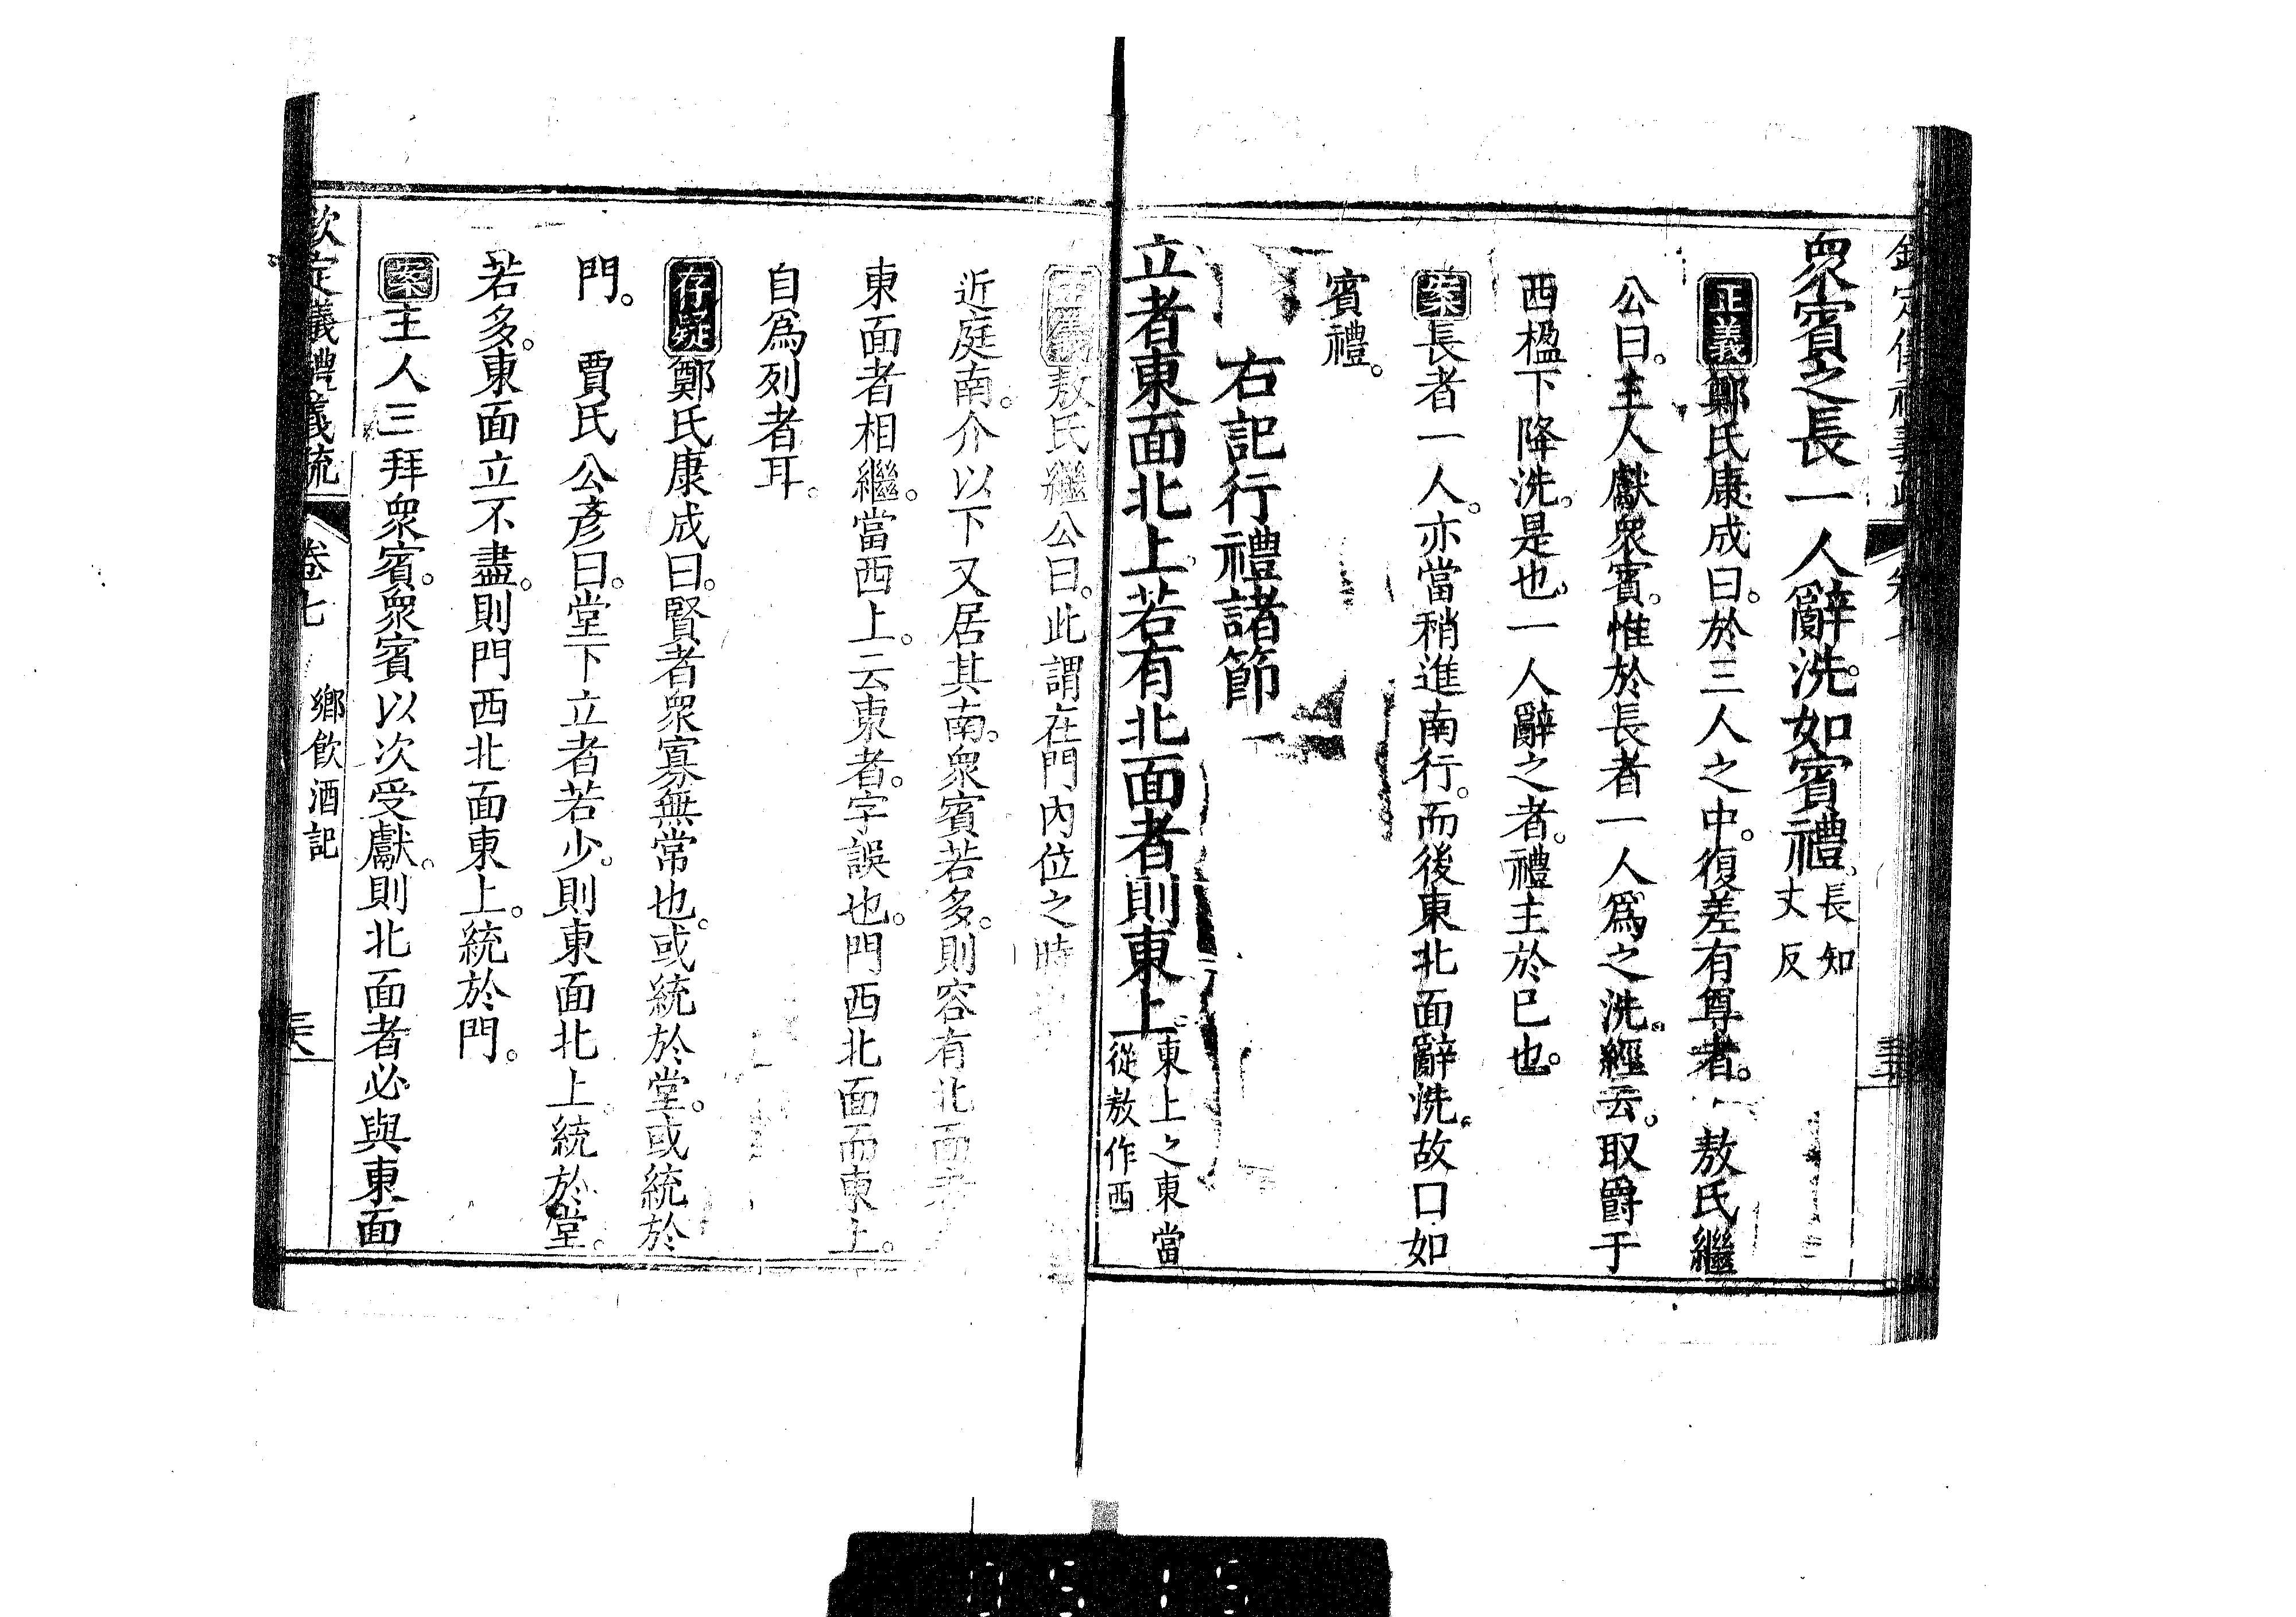 衆賓之長一人辭洗如賓禮長知丈反
正義鄭氏康成曰於三人之中復差有尊者 敖氏繼
公曰主人獻衆賓惟於長者一人爲之洗經云取爵于
西楹下降洗是也一人辭之者禮主於已也
案長者一人亦當稍進南行而後東北面辭洗故口如
賓禮
右記行禮諸節
立者東面北上若有北面者則東上東上之東當從敖作西
敖氏繼公曰此謂在門內位之時
近庭南介以下又居其南衆賓若多則容有北面者
東面者相繼當西上云東者字誤也門西北面而東上
自爲列者耳
存疑鄭氏康成曰賢者衆寡無常也或統於堂或統於
門 賈氏公彥曰堂下立者若少則東面北上統於堂
若多東面立不盡則門西北面東上統於門
案主人三拜衆賓衆賓以次受獻則北面者必與東面
欽定儀禮義疏 卷七 鄉飲酒記